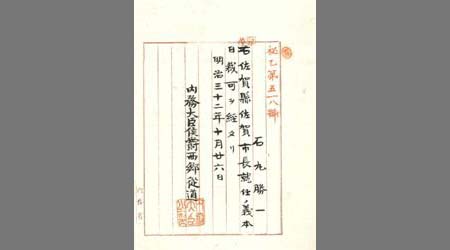 秘乙第五一八號
石丸勝一
右佐賀縣佐賀市長就任ノ義本
日裁可ヲ経タリ
明治三十二年十月廿六日
内務大臣侯爵西郷従道